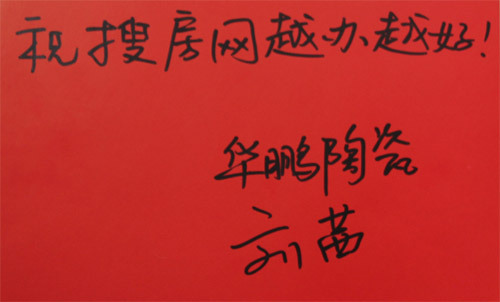 祝搜房网越办越好！
华鹏陶瓷
刘茜